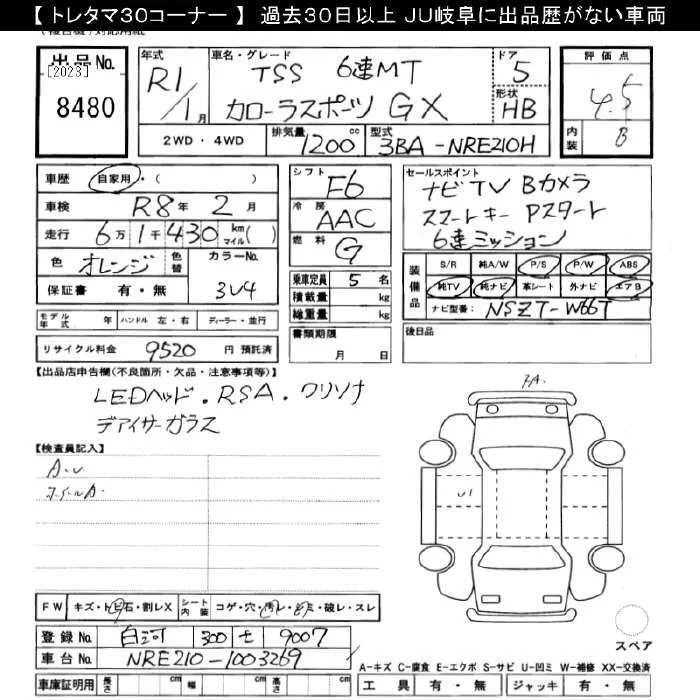 【トレタマ30コーナー】 過去30日以上 JU岐阜に出品歴がない車両
出品No. [2023] 8480
年式 R1/1月
車名・グレード TSS 6速MT カローラスポーツ GX
ドア 5
形状 HB
評価点 4.5
内装 B
2WD・4WD 排気量 1200cc 型式 3BA-NRE210H
車歴 自家用・( )
車検 R8年2月
走行 6万1千430 km マイル( )
色 オレンジ 色替 カラーNo. 3U4
保証書 有・無
モデル年式 年 ハンドル 左・右 ディーラー・並行
リサイクル料金 9520円 預託済
シフト F6
冷房 AAC
燃料 G
乗車定員 5名
積載量 kg
総重量 kg
書類期限 月 日
セールスポイント
ナビTV Bカメラ
スマートキー Pスタート
6速ミッション
装備品 S/R 純A/W P/S P/W ABS
純TV 純ナビ 革シート 外ナビ エアB
ナビ型番: NSZT-W66T
後日品
【出品店申告欄(不良箇所・欠品・注意事項等)】
LEDヘッド.RSA.クリソナ
デアイサーガラス
【検査員記入】
A.U
ホイールA.
FW キズ・トビ石・割レX シート内装 コゲ・穴・汚レ・シミ・破レ・スレ
登録No. 白河 300 せ 9007
車台No. NRE210-1003269
車庫証明用 長さ cm 幅 cm 高さ cm
U1
スペア
A-キズ C-腐食 E-エクボ S-サビ U-凹ミ W-補修 XX-交換済
工具 有・無 ジャッキ 有・無